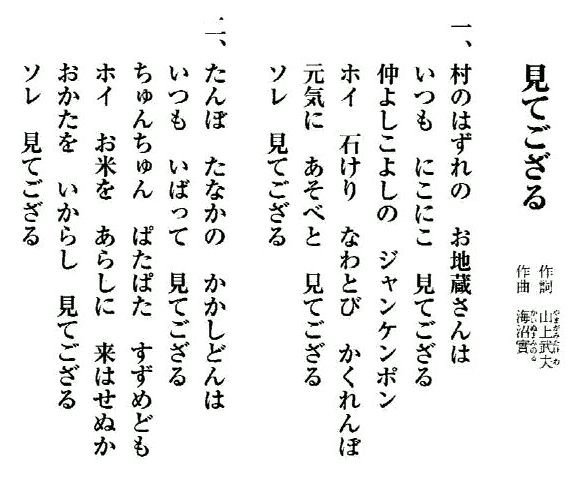 見てござる
作詞 山上武夫
やまがみたけお
作曲 海沼實
かいぬまみのる
一、村のはずれの お地蔵さんは
いつも にこにこ 見てござる
仲よしこよしの ジャンケンポン
ホイ 石けり なわとび かくれんぼ
元気に あそべと 見てござる
ソレ 見てござる
二、たんぼ たなかの かかしどんは
いつも いばって 見てござる
ちゅんちゅん ぱたぱた すずめども
ホイ お米を あらしに 来はせぬか
おかたを いからし 見てござる
ソレ 見てござる